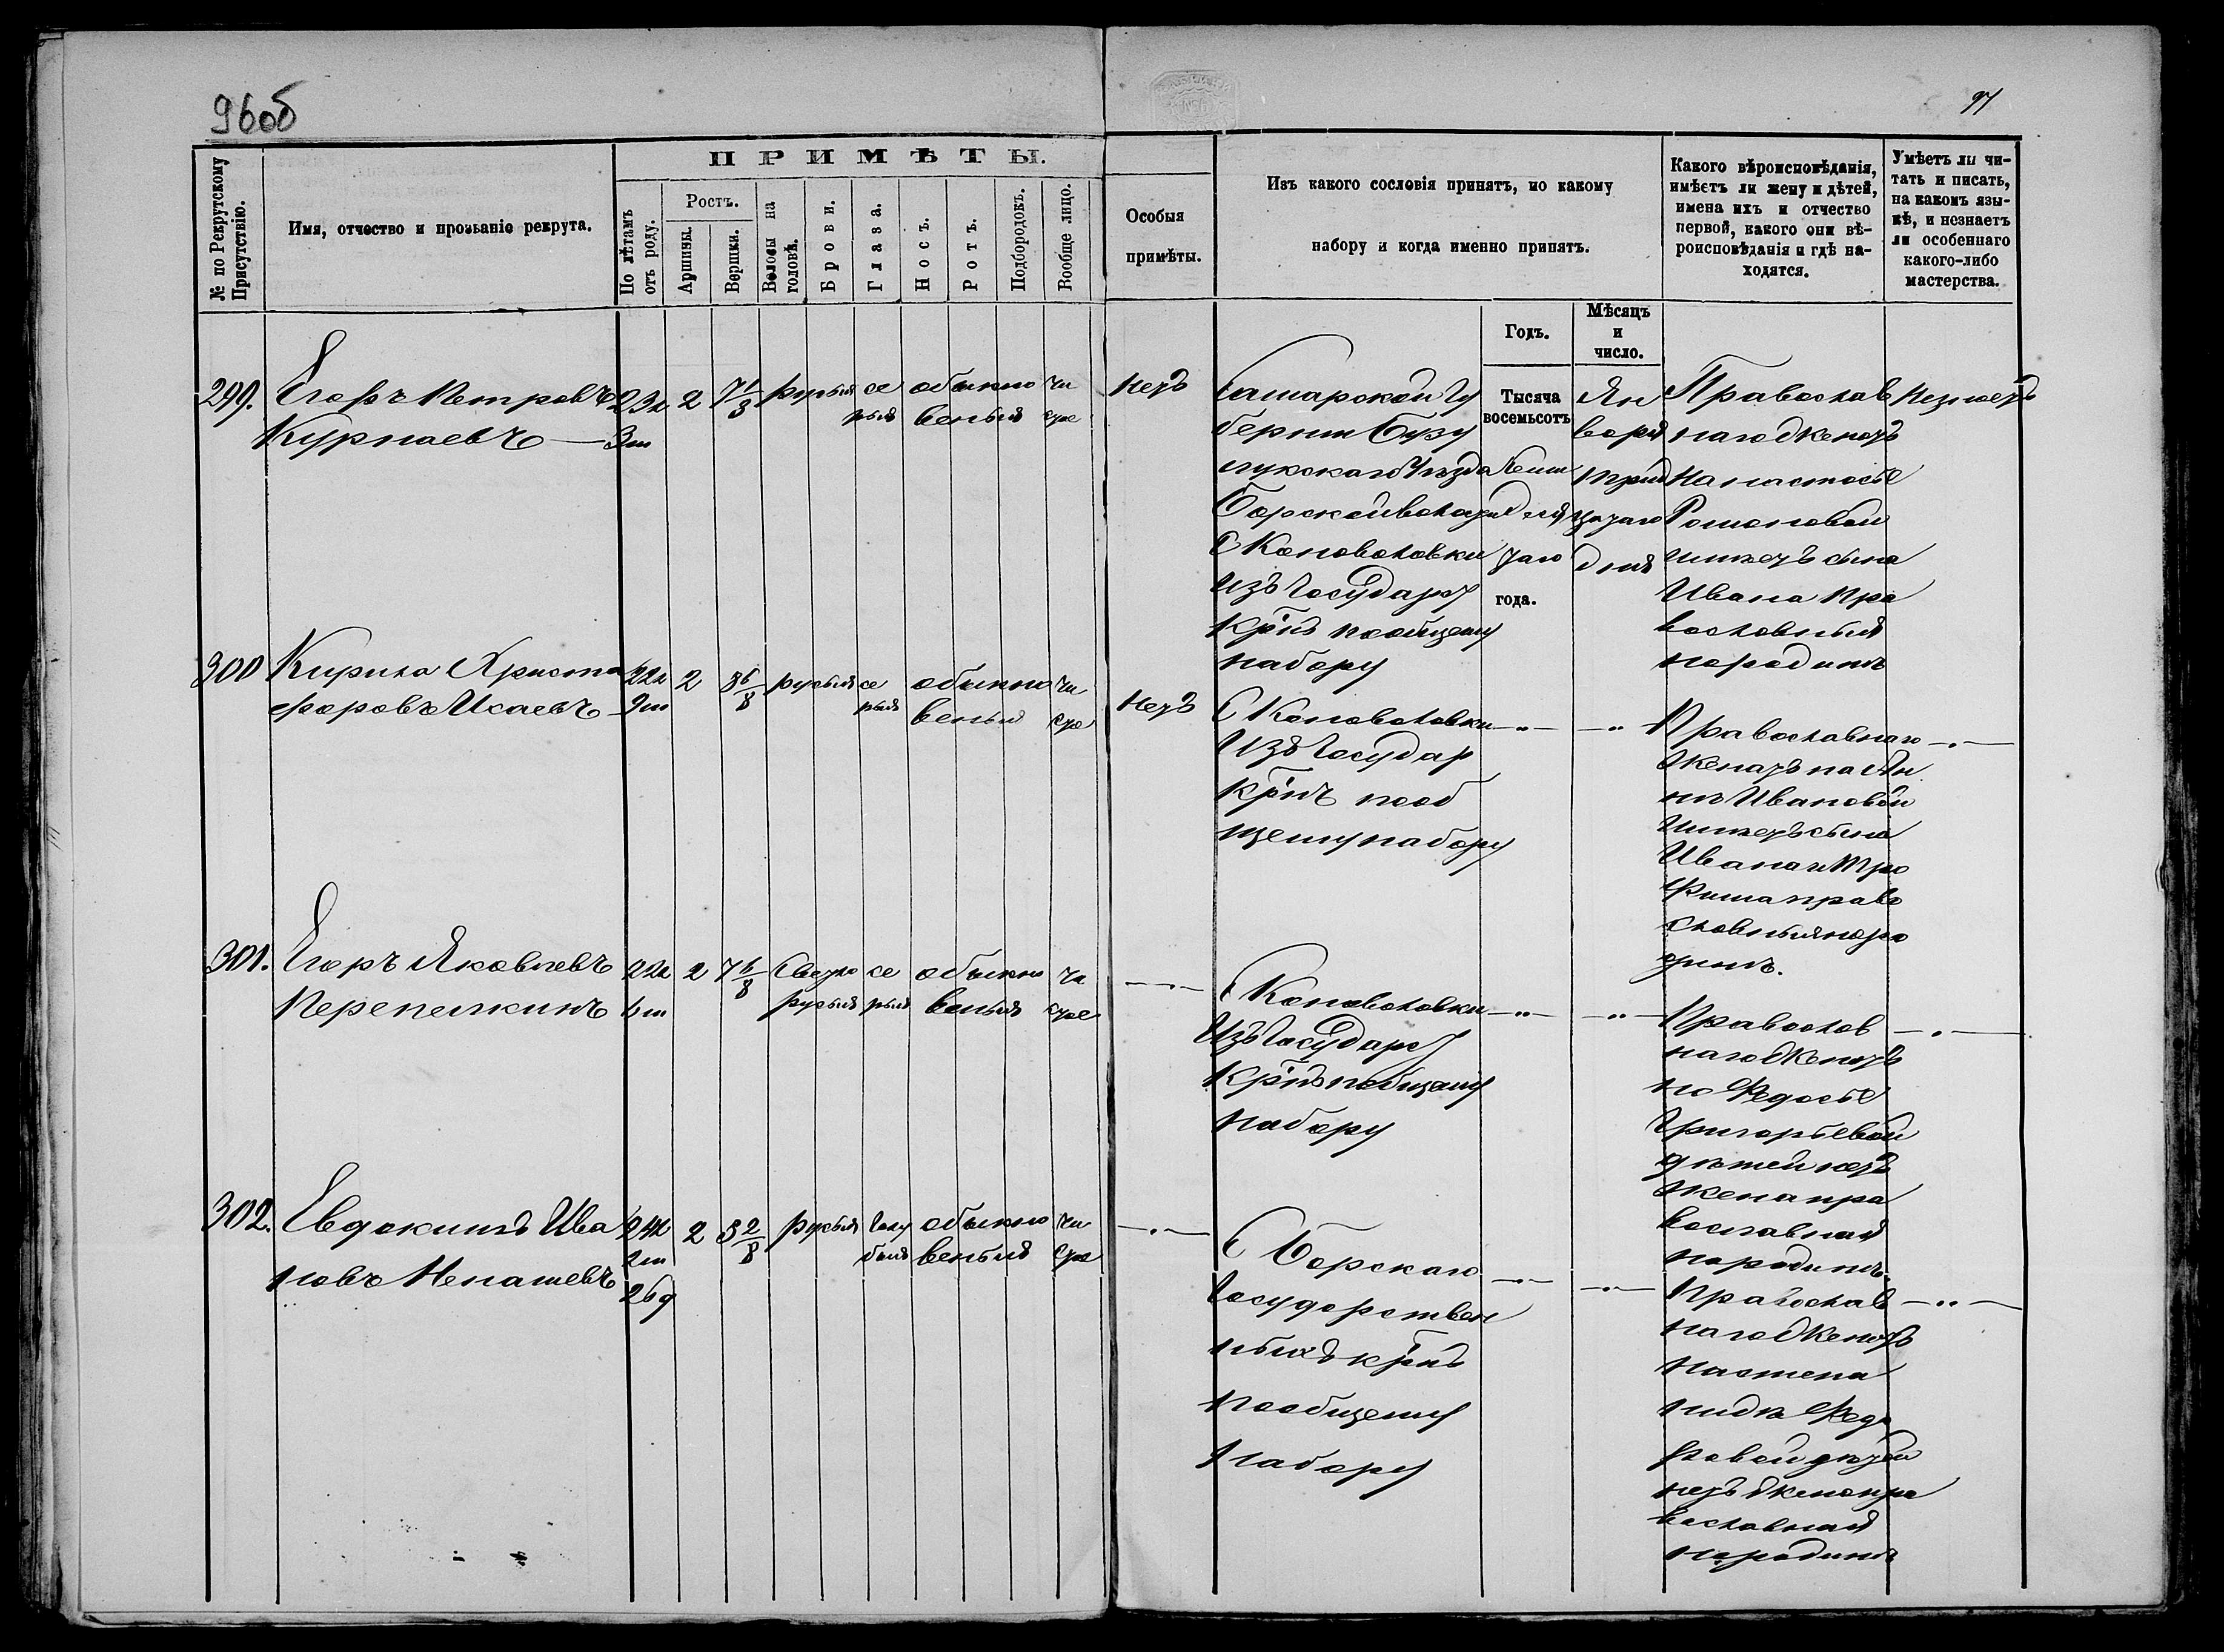 96об
97
№ по Рекрутскому Присутствію.
Имя, отчество и прозваніе рекрута.
ПРИМѢТЫ.
По лѣтамъ отъ роду.
Ростъ.
Аршины.
Вершки.
Волосы на головѣ.
Брови.
Глаза.
Носъ.
Ротъ.
Подбородокъ.
Вообще лицо.
Особыя
примѣты.
Изъ какого сословія принятъ, по какому
набору и когда именно принятъ.
Какого вѣроисповѣданія,
имѣетъ ли жену и дѣтей,
имена ихъ и отчество
первой, какого они вѣ-
роисповѣданія и гдѣ на-
ходятся.
Умѣетъ ли чи-
тать и писать,
на какомъ язы-
кѣ, и незнаетъ
ли особеннаго
какого-либо
мастерства.
Годъ.
Мѣсяцъ
и
число.
299.
Егоръ Петровъ
Курпаевъ
23л
3м
2
русыя
се
рыя
обыкно
веныя
чи
стое
Нетъ
Самарской Гу
берніи Бузу
лукскаго Уѣзда
Борской волости
С Коноваловки
Изъ Государ
Кр̃нъ пообщему
набору
Тысяча
восемьсотъ
семь
деся
таго
года.
Ян
варя
трид
цатаго
дня
Православ
наго Женатъ
На настасье
Романовой
имѣетъ сына
Ивана пра
вославныя
народинѣ
Неумеетъ
300
Кирила Христо
форовъ Исаевъ
22л
9м
2
8 6/8
русыя
се
рыя
обыкно
веныя
чи
стое
Нетъ
С Коноваловки
Изъ Государ
Кр̃нъ пооб
щему набору
Православнаго
Женатъ на Ан
нѣ Ивановой
Имѣетъ сына
Ивана и Тро
фима право
славныя наро
динѣ.
301.
Егоръ Яковлевъ
Перепелкинъ
22л
6м
2
7 6/8
Светло
русыя
се
рыя
обыкно
веныя
чи
стое
С Коноваловки
Изъ Государ
Кр̃нъ пообщему
набору
Православ
наго Женатъ
на Федосье
Григорьевой
дѣтей нетъ
жена пра
вославная
народинѣ
302.
Евдокимъ Ива
новъ Ненашевъ
24л
2м
26д
2
3 2/8
русыя
Голу
быя
обыкно
веныя
чи
стое
С Борскаго
Государствен
ныхъ кр̃нъ
пообщему
Набору
Православ
наго Женатъ
Настепа
нидѣ Федо
ровой дѣтей
нетъ жена пра
вославная
народинѣ